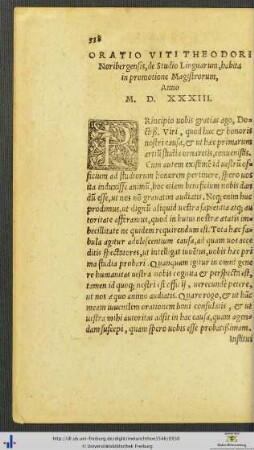 558
ORATIO VITI THEODORI
Noribergensis, de Studio Linguarum, habita
in promotione Magistrorum,
Anno
M. D. XXXIII.
PRIncipio uobis gratias ago, Do-
ctiß. Viri, quod huc & honoris
nostri causa, & ut hæc primarum
artiū studia ornaretis, conuenistis.
Cum autem existimē id uestrū of-
ficium ad studiorum honorem pertinere, spero uos
ita induxisse animū, hoc etiam beneficium nobis dan
dū esse, ut nos nō grauatim audiatis. Neq; enim huc
prodimus, ut dignū aliquid uestra sapientia atq; au-
toritate afferamus, quod in huius nostræ ætatis im-
becillitate ne quidem requirendum est. Tota hæc fa-
bula agitur adolescentum causa, ad quam uos acce
distis spectatores, ut intelligat iuuētus, uobis hæc pri
ma studia probari. Quanquam igitur is omni gene
re humanitas uestra nobis cognita & perspecta est,
tamen id quoq; nostri est officij, uerecunde petere,
ut nos æquo animo audiatis. Quare rogo, & ut hūc
meam iuuenilem orationem boni consulatis, & ut
uestra mihi autoritas adsit in hac causa, quam agen-
dam suscepi, quam spero uobis esse probatißimam.
Institui
© Universitätsbibliothek Freiburg